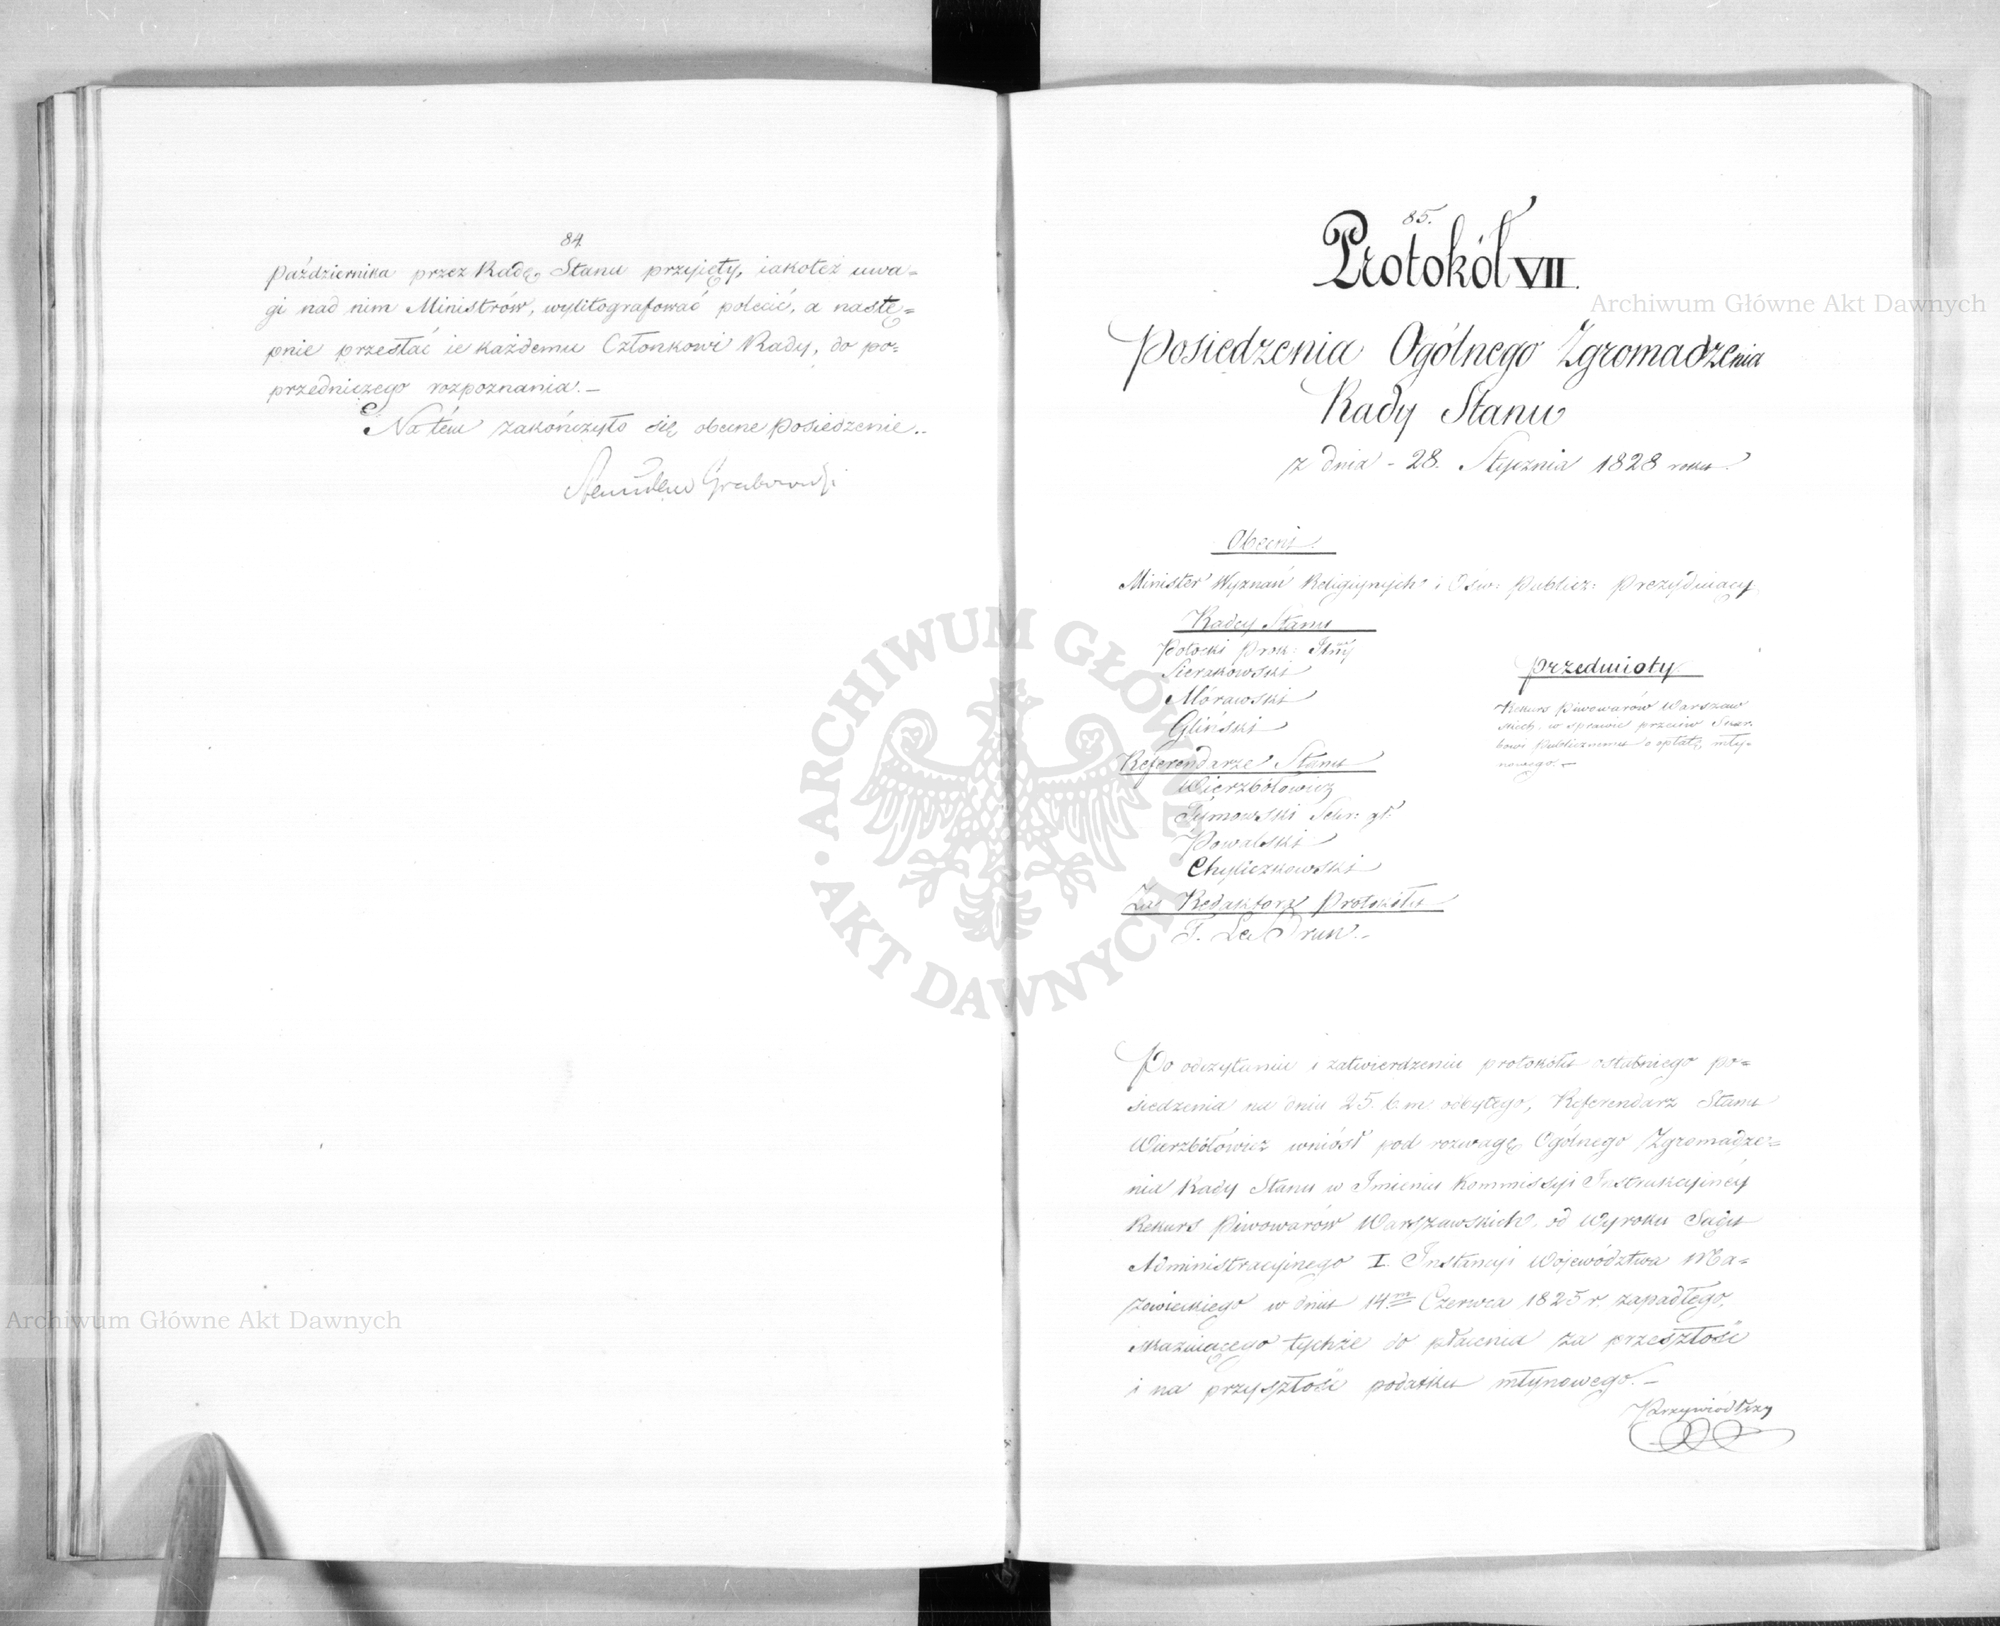 84
Października przez Radę Stanu przyięty, iakoteż uwa-
gi nad nim Ministrów, wylitografować polecić, a nastę-
pnie przesłać ie każdemu Członkowi Rady, do po-
przedniczego rozpoznania.-
Na tém zakończyło się obecne posiedzenie.-
Stanisław Grabowski
85.
Protokół VII.
Posiedzenia Ogólnego Zgromadzenia
Rady Stanu
z dnia - 28. Stycznia 1828 roku.
Obecni.
Minister Wyznań Religiynych i Ośw: Publicz: Prezyduiący
Radcy Stanu
Potocki Prok: Jlny
Sierakowski
Morawski
Gliński
Referendarze Stanu
Wierzbółowicz
Tymowski Sekr: gł:
Kowalski
Chyliczkowski
Za Redaktora Protokółu
F. Le Brun.-
Przedmioty
Rekurs Piwowarów Warszaw
skich, w sprawie przeciw Skar-
bowi Publicznemu o opłatę mły-
nowego.-
Po odczytaniu i zatwierdzeniu protokółu ostatniego po-
siedzenia na dniu 25. b. m. odbytego, Referendarz Stanu
Wierzbółowicz wniósł pod rozwagę Ogólnego Zgromadze-
nia Rady Stanu w Imieniu Kommissyi Instrukcyinéy
Rekurs Piwowarów Warszawskich, od Wyroku Sądu
Administracyinego I. Instancyi Województwa Ma-
zowieckiego w dniu 14m Czerwca 1825 r. zapadłego,
skazuiącego tychże do płacenia za przeszłość
i na przyszłość podatku młynowego.-
Przywiódłszy
Archiwum Główne Akt Dawnych
Archiwum Główne Akt Dawnych
ARCHIWUM GŁÓWNE · AKT DAWNYCH ·